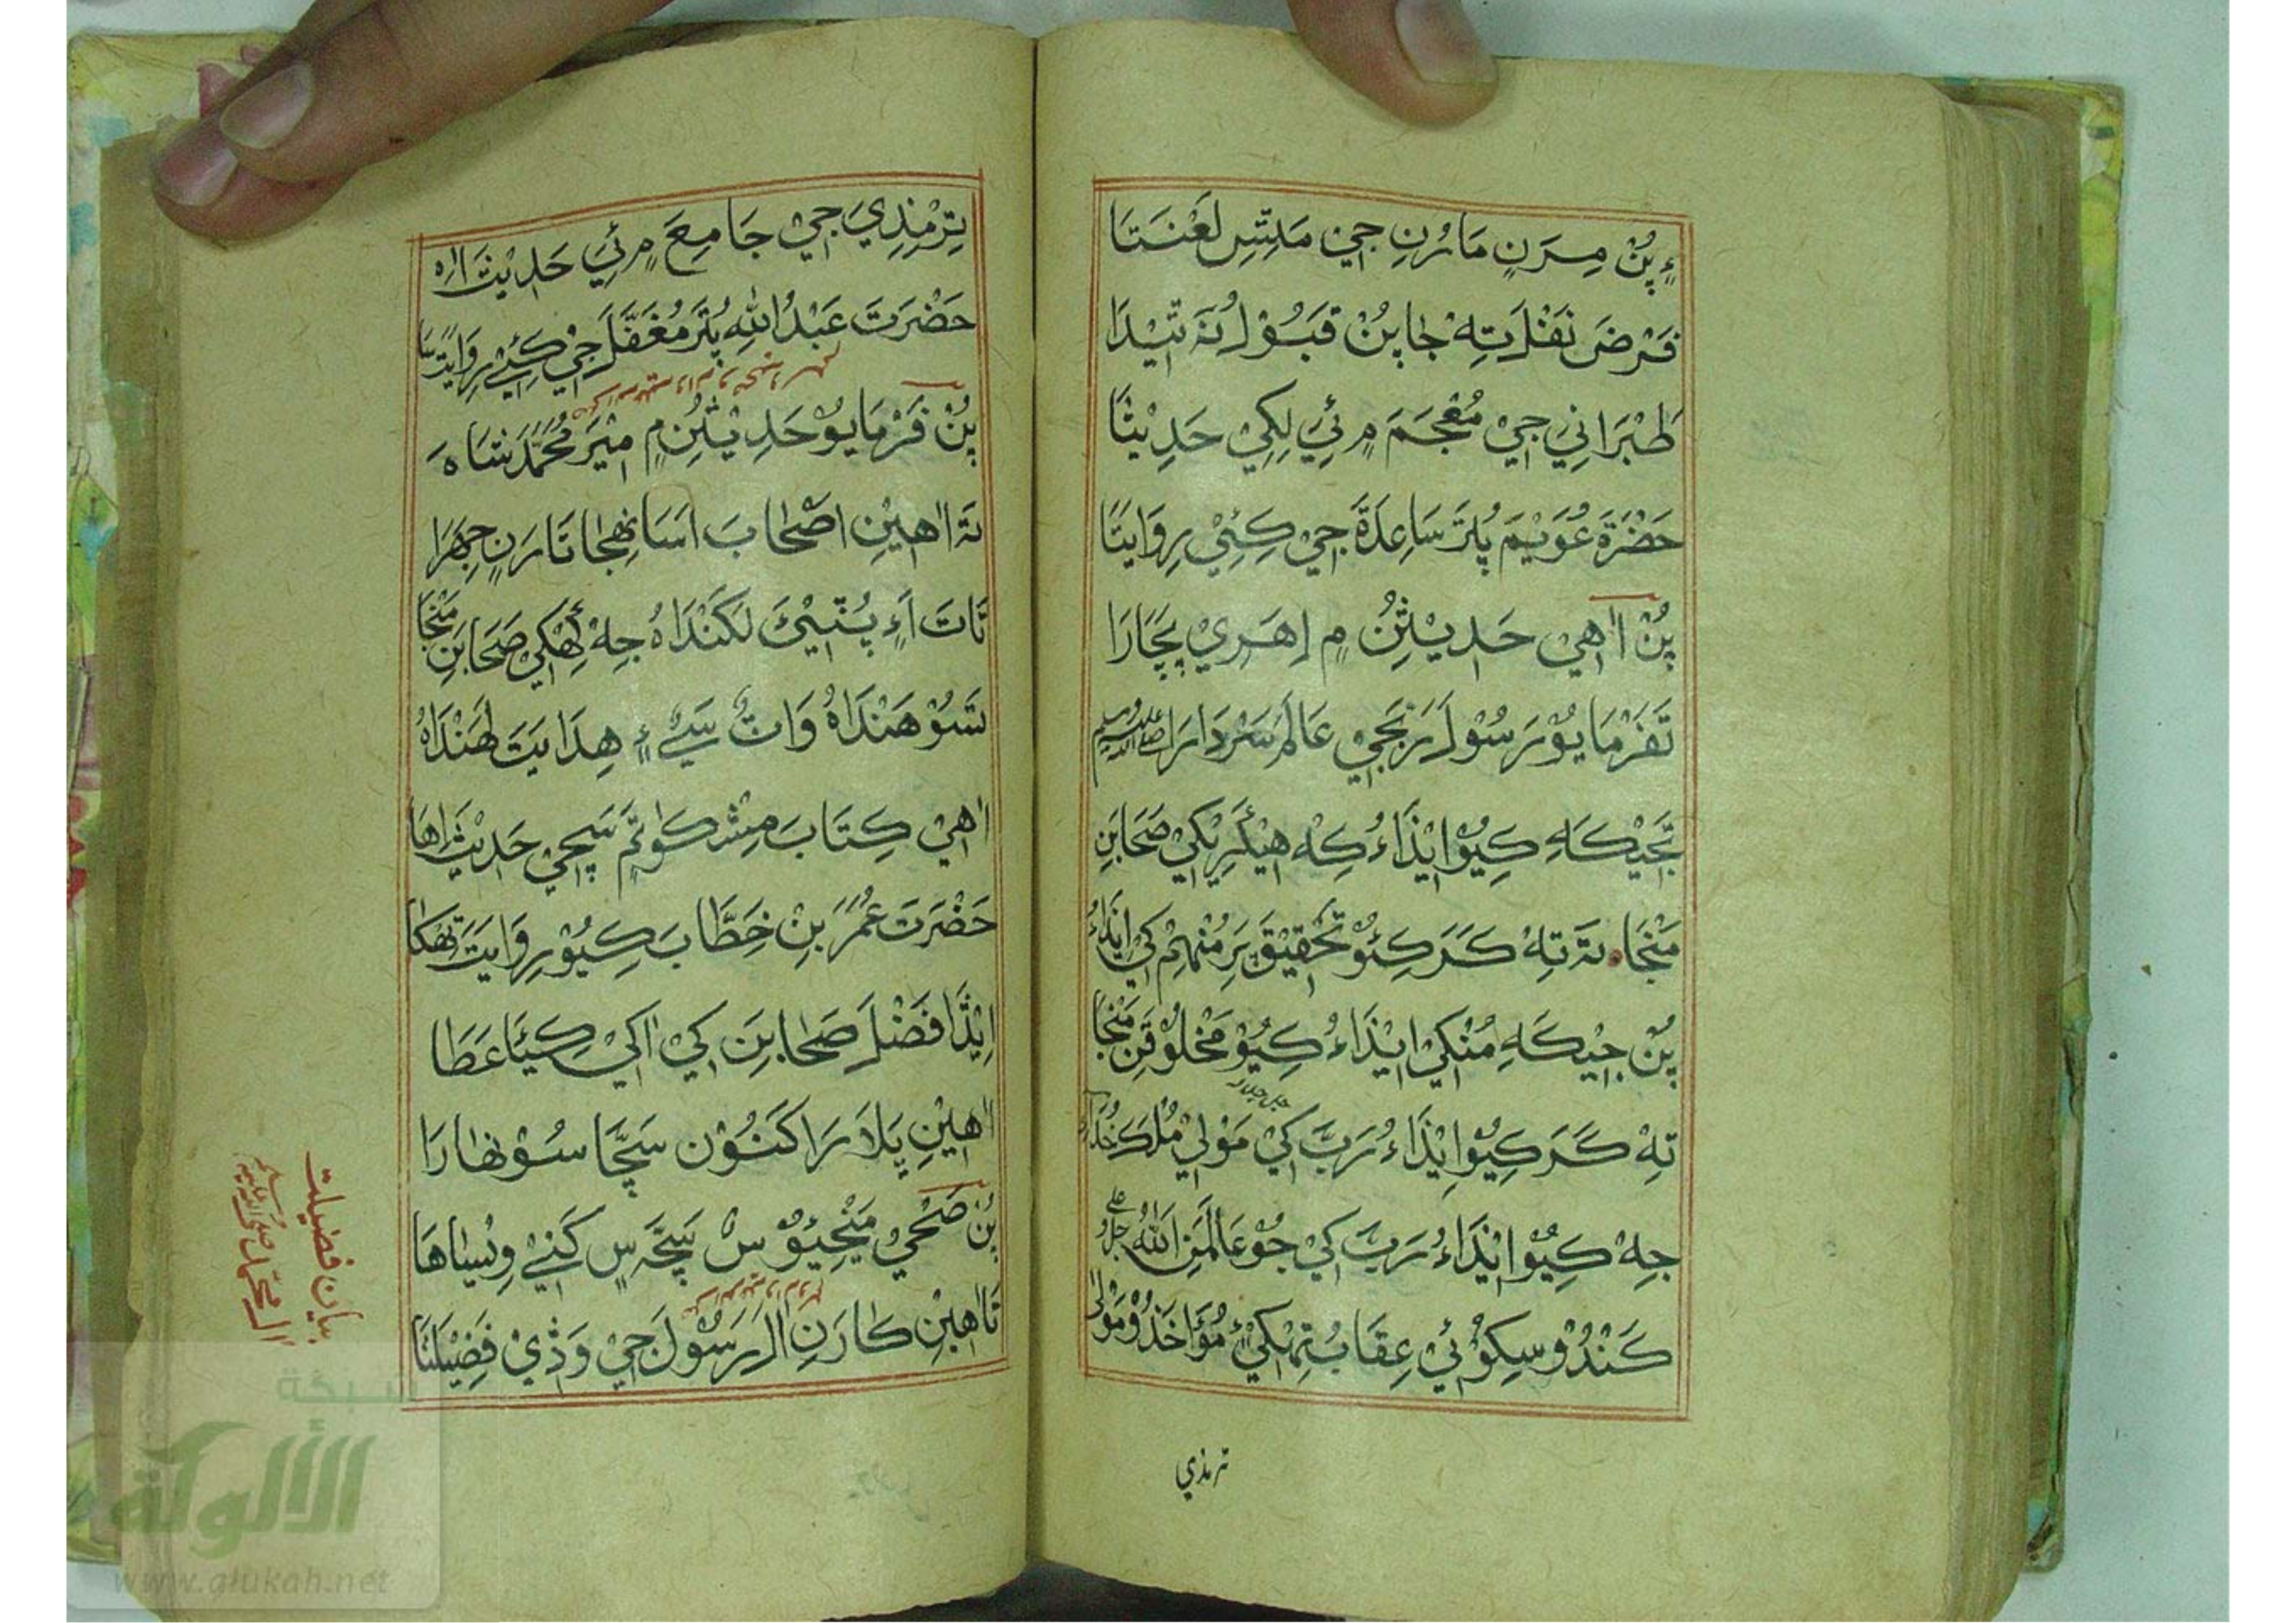 ۽ پُنْ مِرَنٍ مَارُنِ جِيْ مَٿِسِ لَعْنَتَا
فَرْضَ نَفْلَ تِهْ جَا پُنْ قَبُوْلُ نَہ ٿِيْدَا
طَبْرَانِيْ جِيْ مُعْجَمَ ۾ ئِيْ لِکِيْ حَدِيْثَا
حَضْرَةَ عُوَيْمَ پُٽَرَ سَاعِدَةَ جِيْ کِئِيْ رِوَايَتَا
پُنْ اٰهِيْ حَدِيْثِنُ ۾ اِهَرِيْ پَچَارَا
تَ فَرْمَايُوْ رَسُوْلَ رَبَّ جِيْ عَالَمَ سَرْدَارَا صلي الله عليه وسلم
تَ جِيْکَاہِ کِيُوْ اِيْذَاءُ کِهْ هِيْکَرِيْکِيْ صَحَابَنِ
مَنْجَا تَہ تِهْ کَرَ کِئُوْ تَحْقِيْقَ پَرِ مُنْهِمْ کِيْ اِيْذَاءُ
پُنْ جِيْکَہِ مُنْکِيْ اِيْذَاءُ کِيُوْ مَخْلُوْقَنِ مَنْجَا
تِهْ کَرَ کِيُوْ اِيْذَاءُ رَبَّ کِيْ مَوْلِيْ مُلْکَ خُدَاءِ
جل جلاله
جِهْ کِيُوْ اِيْذَاءُ رَبَّ کِيْ جُوْ عَالَمَنِ اللّٰهُ جل علي
کَنْدُوْ سِکِوْئِيْ عِقَابُ تِهْکِيْ ۽ مُؤَاخَذُوْ مَوْلٰي
ترمذي
تِرْمِذِيَ جِيْ جَامِعَ ۾ ئِيْ حَدِيْثَ اٰہِ
حَضْرَتَ عَبْدُ اللّٰهِ پُٽَرَ مُغَفَّلَ جِيْ کِئِيْ رِوَايَتَا
پُنْ فَرْمَايُوْ حَدِيْثِنِ ۾ مِيْرَ مُحَمَّدَ شَاہَ
تَہ اٰهِيْنِ اَصْحَابَ اَسَانِهِجَا تَارَنِ جِهَرَا
تَاتَ اَءِ پُٺِيْئَ لَکَنْدَاہُ جِهْ کِهْکِيْ صَحَابَنِ مَنْجَا
سُوْ هَنْدَاہُ وَاٽُ سَيِّ ۽ هِدَايَتَ لَهَنْدَاہُ
اٰهِيْ کِتَابَ مِشْکٰوةَ ۾ سَچِيْ حَدِيْثَ اِهَا
حَضْرَتَ عُمَرَ بِنْ خَطَّابَ کِيُوْ رِوَايَتَ تِهْکَا
اِيْذَا فَضْلَ صَحَابَنِ کِيْ اٰکِيْ کِيَئَا عَطَا
اٰهِيْنِ پِلَارَا کَنُوْنِ سَچَّا سُوْنهَارَا
پُنْ صَحْيْ مَنْجِيُوْسْ سَچَّہ سٍ کَنِيْ وِيْسَاهَا
تَ اٰهِيْنِ کَارَنِ اٰلَ رَسُوْلَ جِيْ وَڏِيْ فَضِيْلَتَا
بيان فضيلت
آل محمد صلي الله عليه وسلم
شبكة
الألوكة
www.alukah.net